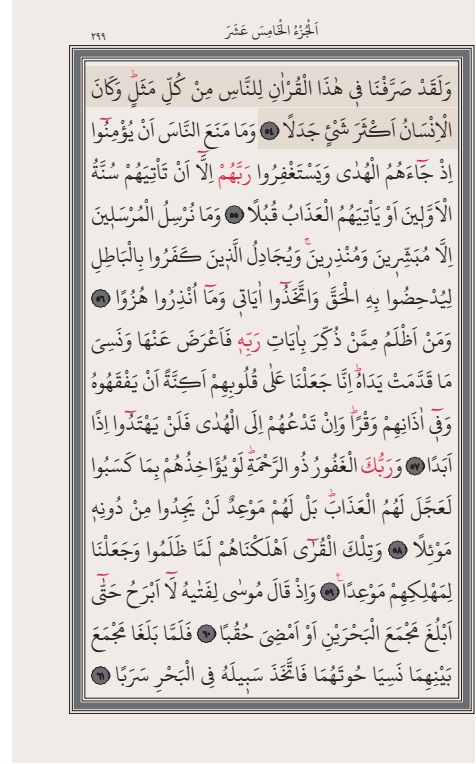 اَلْجُزْءُ الْخَامِسَ عَشَرَ
٢٩٩
وَلَقَدْ صَرَّفْنَا فٖي هٰذَا الْقُرْاٰنِ لِلنَّاسِ مِنْ كُلِّ مَثَلٍؕ وَكَانَ
الْاِنْسَانُ اَكْثَرَ شَيْءٍ جَدَلًا ﴿٥٤﴾ وَمَا مَنَعَ النَّاسَ اَنْ يُؤْمِنُٓوا
اِذْ جَٓاءَهُمُ الْهُدٰى وَيَسْتَغْفِرُوا رَبَّهُمْ اِلَّٓا اَنْ تَأْتِيَهُمْ سُنَّةُ
الْاَوَّلٖينَ اَوْ يَأْتِيَهُمُ الْعَذَابُ قُبُلًا ﴿٥٥﴾ وَمَا نُرْسِلُ الْمُرْسَلٖينَ
اِلَّا مُبَشِّرٖينَ وَمُنْذِرٖينَۚ وَيُجَادِلُ الَّذٖينَ كَفَرُوا بِالْبَاطِلِ
لِيُدْحِضُوا بِهِ الْحَقَّ وَاتَّخَذُٓوا اٰيَاتٖي وَمَٓا اُنْذِرُوا هُزُوًا ﴿٥٦﴾
وَمَنْ اَظْلَمُ مِمَّنْ ذُكِّرَ بِاٰيَاتِ رَبِّهٖ فَاَعْرَضَ عَنْهَا وَنَسِيَ
مَا قَدَّمَتْ يَدَاهُؕ اِنَّا جَعَلْنَا عَلٰى قُلُوبِهِمْ اَكِنَّةً اَنْ يَفْقَهُوهُ
وَفٖٓي اٰذَانِهِمْ وَقْرًاؕ وَاِنْ تَدْعُهُمْ اِلَى الْهُدٰى فَلَنْ يَهْتَدُٓوا اِذًا
اَبَدًا ﴿٥٧﴾ وَرَبُّكَ الْغَفُورُ ذُو الرَّحْمَةِؕ لَوْ يُؤَاخِذُهُمْ بِمَا كَسَبُوا
لَعَجَّلَ لَهُمُ الْعَذَابَؕ بَلْ لَهُمْ مَوْعِدٌ لَنْ يَجِدُوا مِنْ دُونِهٖ
مَوْئِلًا ﴿٥٨﴾ وَتِلْكَ الْقُرٰٓى اَهْلَكْنَاهُمْ لَمَّا ظَلَمُوا وَجَعَلْنَا
لِمَهْلِكِهِمْ مَوْعِدًا۟ ﴿٥٩﴾ وَاِذْ قَالَ مُوسٰى لِفَتٰيهُ لَٓا اَبْرَحُ حَتّٰٓى
اَبْلُغَ مَجْمَعَ الْبَحْرَيْنِ اَوْ اَمْضِيَ حُقُبًا ﴿٦٠﴾ فَلَمَّا بَلَغَا مَجْمَعَ
بَيْنِهِمَا نَسِيَا حُوتَهُمَا فَاتَّخَذَ سَبٖيلَهُ فِي الْبَحْرِ سَرَبًا ﴿٦١﴾